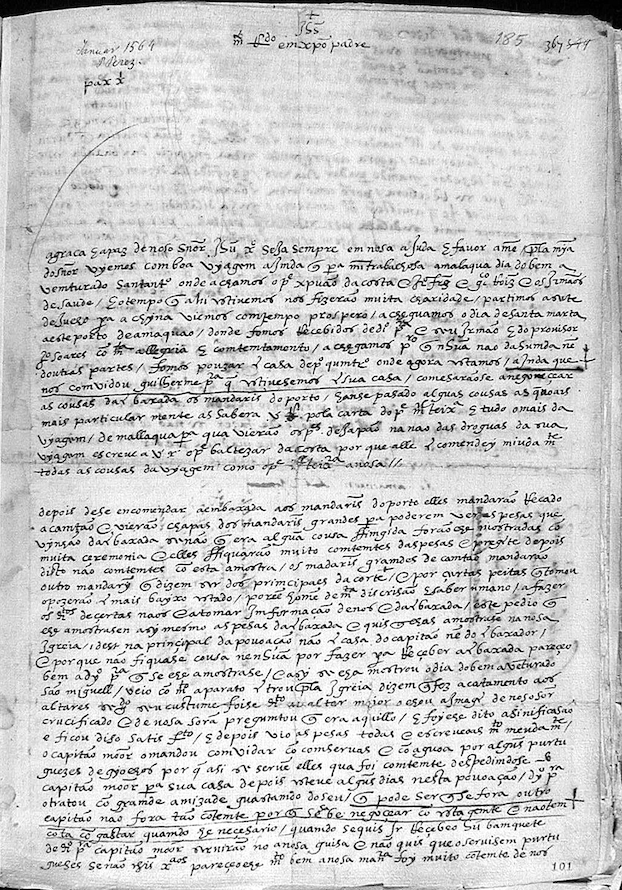 +
Jhs
Januar 1564
P. Perez.
em xpō padre
185
367
pax xī
a graça e a paz de noso Snõr Jhū xº seja sempre em nosa ajuda e favor ame / pla
do sñor vyemos com boa vyagem ainda q pa mī trabalhosa a malaqua dia do bem a
venturado Santantº onde achamos o pe xpuão da costa
de saude / e o tempo q ahi estivemos nos fizerão muita charidade / partimos a sete
de julho pa a chyna viemos com tempo prospero / e cheguamos o dia de santa marta
a este porto de amaquao / donde fomos Recebidos de dº pra e seu Irmão e do provisor
soares co mta allegria e comtemtamento / a chegamos
doutras partes / fomos pouzar ē casa de pº quintº onde agora estamos / ainda que
nos comvidou guilherme pra q estivesemos ē sua casa / comesarão se a negocear
as cousas da ēbaxada os mandaris do porto / e ão se pasado algūas cousas as quoais
mais particular mente as sabera v R pola carta do pe mel teixra e tudo o mais da
vyagem / de mallaqua pa qua vierão os pes de Japão na nao das droguas da sua
vyagem escreve a v rª o pe baltezar da costa por que a elle ēcomendey miuda mte
todas as cousas da vyagem como o pe teixra a nosa //
depois de se encomendar a ēmbaxada aos mandaris do porto elles mandarão Recado
a cantão e vierão chapas dos mandaris grandes pa poderem ver as pesas que
vinhão da ēbaxada se não q era algūa cousa fingida forão lhe mostradas co
muita ceremonia e elles fiquarão muito comtentes das pesas e prezēte depois
disto não comtentes co esta amostra / os mādaris grandes de cantão mandarão
outro mandarȳ q dizem ser dos principaes da corte / e por certas peitas q tomou
o pozerão ē mais bayxo estado / porē home de mta discrisão e saber umano / a fazer
os dtos de certas naos e a tomar Imformação de nos e da ēbaxada / este pedio q
lhe amostrasem asy mesmo as pesas da ēbaxada e quis q lhas amostrase na nosa
Igreia / idest na principal da povoação não ē casa do capitão nē do ēbaxador /
e porque não fiquase cousa nenhūa por fazer pa Receber a ēbaxada pareçeo
bem a dº pra q se lhe amostrase / e asy se lhe mostrou o dia do bem aventurado
são miguell / veio co mto aparato ē trou pla Igreia dizem q fez acatamento aos
altares segdo seu custume foise dtº ao altar mayor e o cheu a Image de noso sor
crucificado e de nosa sora preguntou q era aquillo / e foy lhe dito a sinificasão
e ficou diso satisfto / e depois vio as pesas todas e escreveas mto meuda mte /
o capitão moor o mandou comvidar co comservas e co agoa por algūs purtu
guezes de gyolhos por q asi se servē elles qua foi comtemte despedindose do
capitão moor pa sua casa depois esteve algūs dias nesta povoação / dº pra
o tratou co grande amizade guastando do seu / q pode ser q se fora outro
capitão não fora tão cotemte por q sabe negocear co esta gente e não tem
cota co gastar quando he necesario / quando se quis Ir Recebeo hū bamquete
de dº pra capitão moor servirão no a nosa guisa e não quis que o servisem purtu
guezes senão pareçeo lhe mto bem a nosa manra foy muito cotemte de nos
101